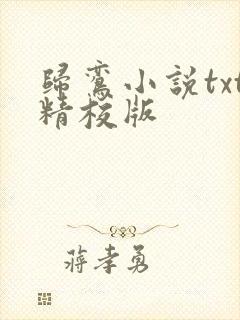 歸鸞小說txt
精校版
蔣孝勇